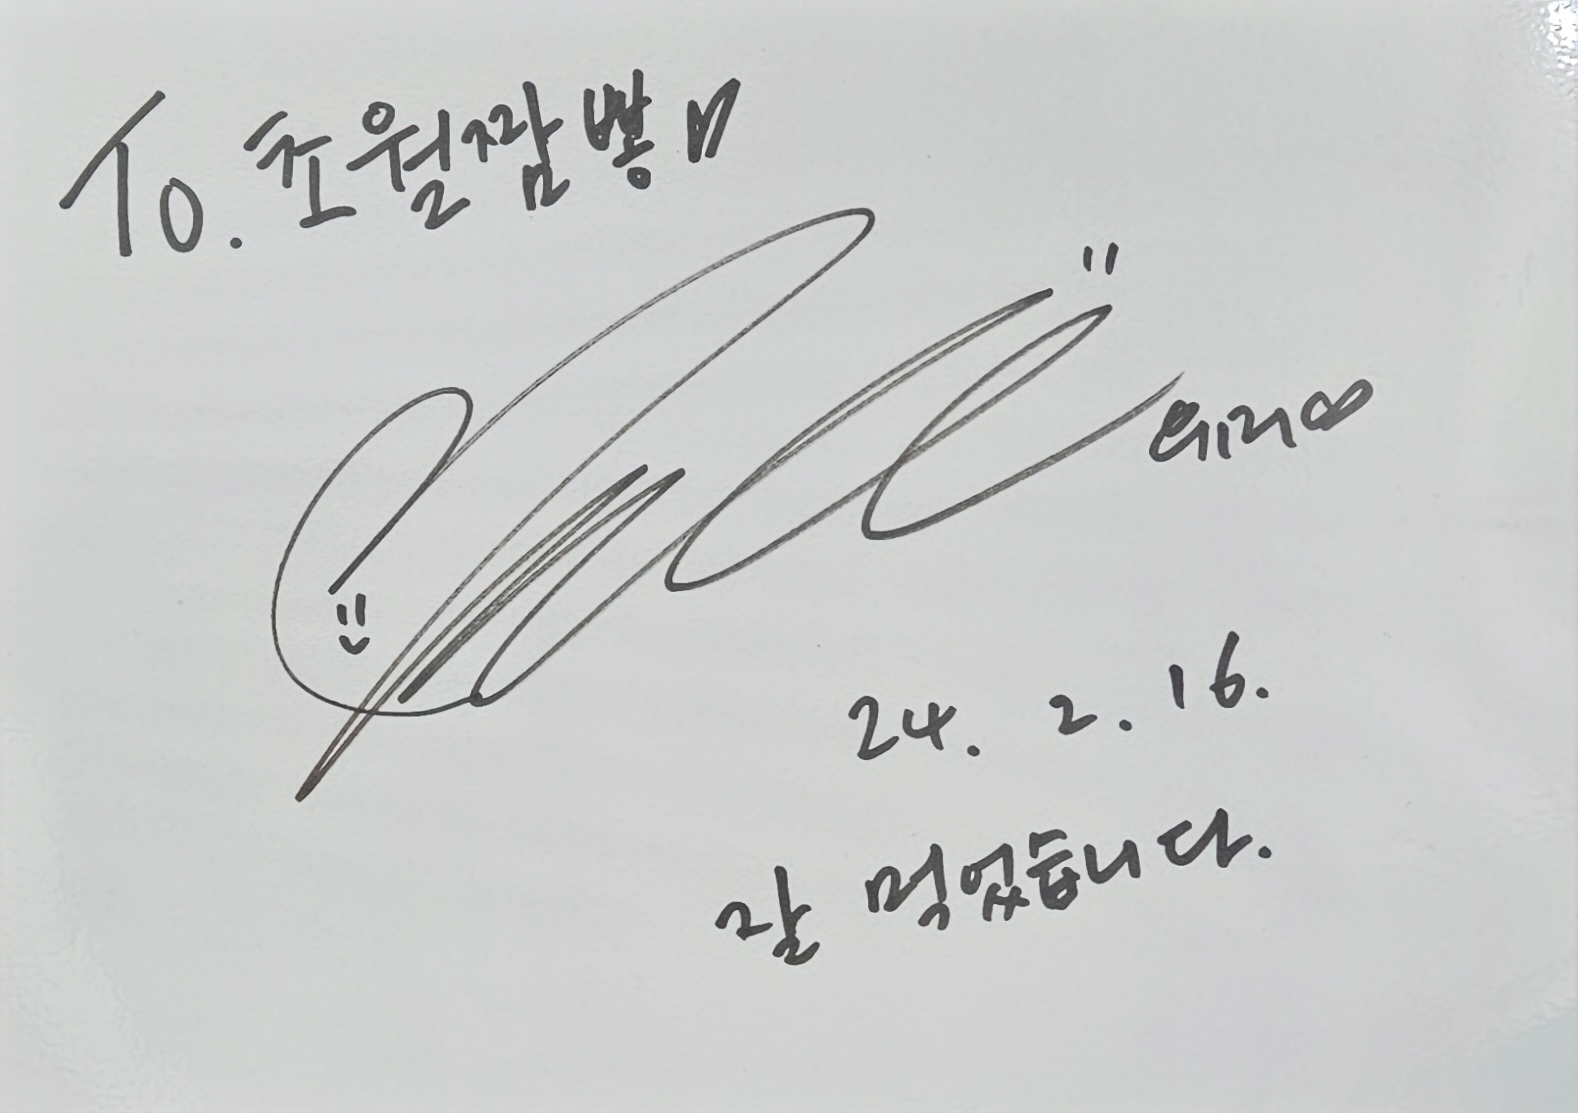 To. 초월짬뽕
의리∞
24. 2. 16.
잘 먹었습니다.